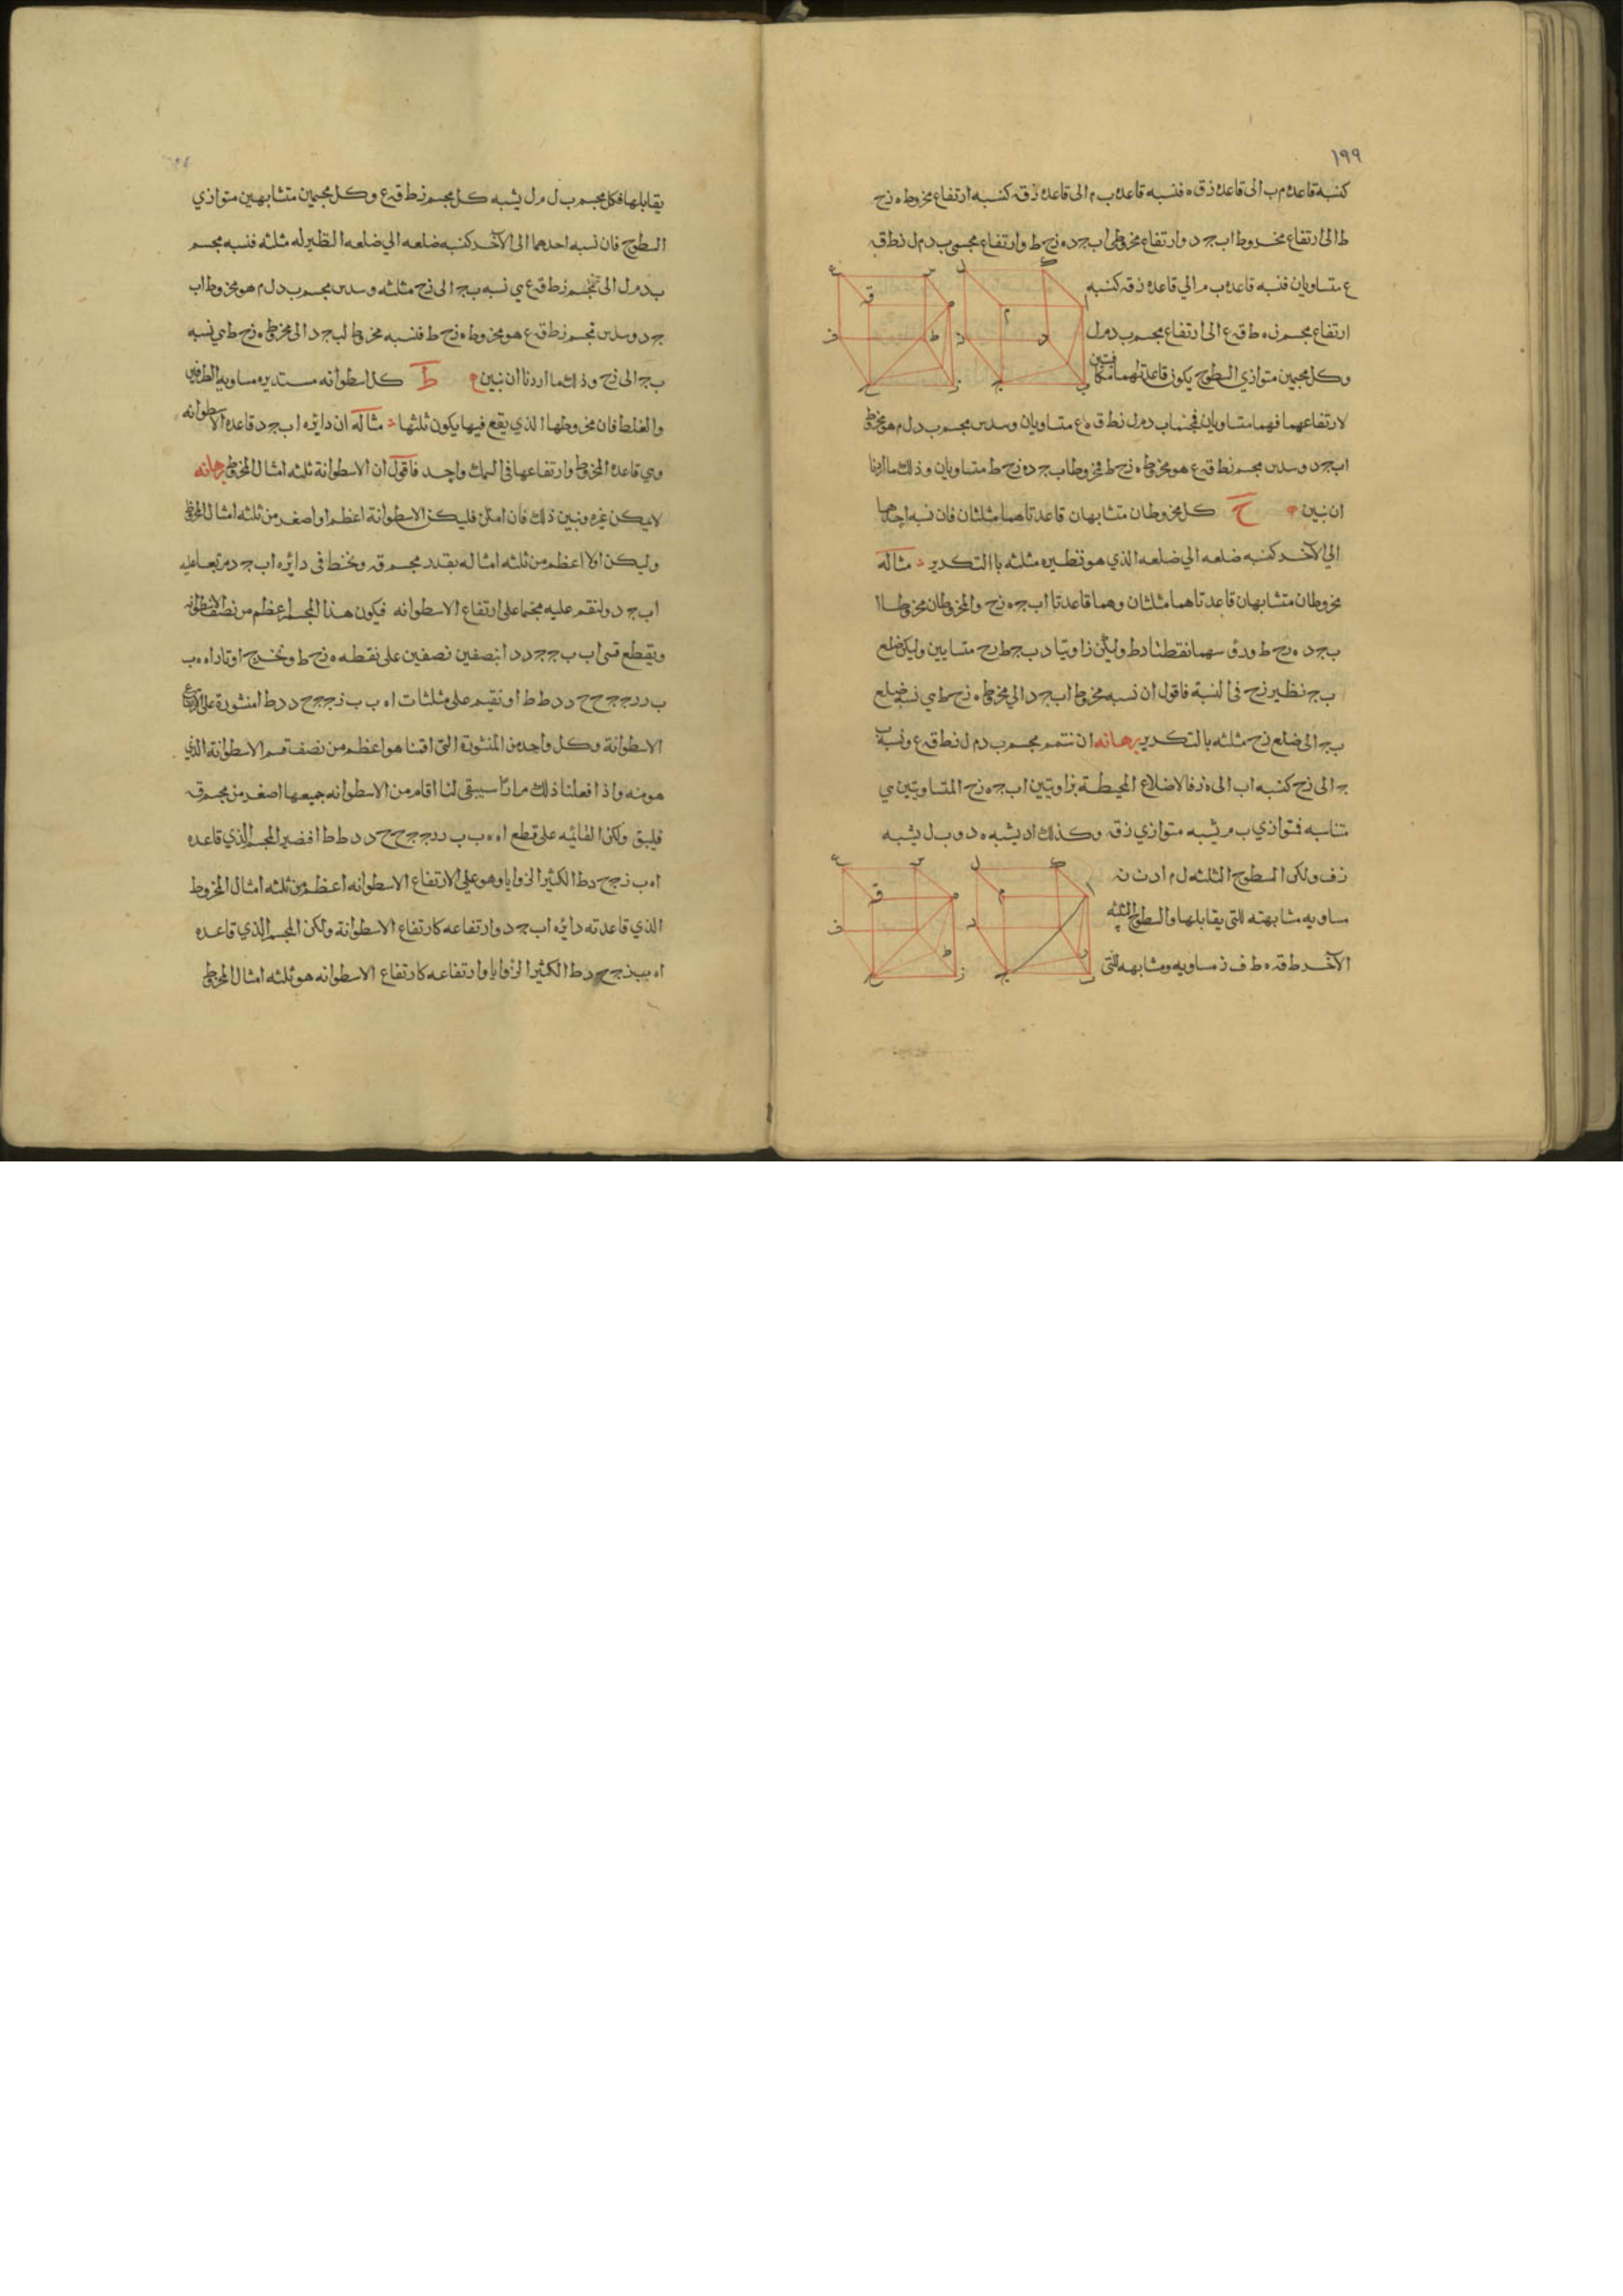 ١٩٩
كنسبة قاعدة م ب الى قاعدة ذ ق ه فنسبه قاعدة ب م الى قاعدة ز ق كنسبه ارتفاع مخروط ه زح
ط الى ارتفاع مخروط اب ج د وارتفاع مخروطى اب ج د ه زح ط وارتفاع مجسمى ب د م ل ز ط ق
ع متساويان فنسبه قاعدة ب م الي قاعدة ز ق كنسبه
ارتفاع مجسم ز ه ط ق ع الى ارتفاع مجسم ب د م ل
وكل مجسمين متوازي السطوح يكون قاعدتهما مكافئتين
لارتفاعهما فهما متساويان فمجسما ب د م ل ز ط ق ه ع متساويان وسدس مجسم ب د ل م هو مخروط
اب ج د وسدس مجسم ز ط ق ع هو مخروط ه زح ط فمخروطا اب ج د ه زح ط متساويان وذلك ما اردنا
ان نبين ح كل مخروطان متشابهان قاعدتاهما مثلثان فان نسبه احدهما
الي الآخر كنسبه ضلعه الي ضلعه الذي هو نظيره مثلثه باالتكرير مثاله
مخروطان متشابهان قاعدتاهما مثلثان وهما قاعدتا اب ج ه زح والمخروطان مخروطا ا
ب ج د ه زح ط و سهما نقطتا د ط وليكن زاويتا د ب ج ط زح متساويين وليكن ضلع
ب ج نظير زح فى النسبة فاقول ان نسبه مخروط اب ج د الي مخروط ه زح ط هي نسبة ضلع
ب ج الى ضلع زح مثلثه بالتكرير برهانه ان نتمم مجسم ب د م ل ز ط ق ع ونسبة ب
ج الى زح كنسبه اب الى ه ز فالاضلاع المحيطة بزاويتين اب ج ه زح المتساويتين هي
متناسبه فمتوازي ب م يشبه متوازي ز ق وكذلك اد يشبه ه د و ب ل يشبه
ز ف ولكن السطوح الثلثه ل م اد
مساويه مشابهته للتى يقابلها والسطوح الثلثه
الآخر ط ق ه ط ف ز مساويه ومشابهه للتى
يقابلها فكل مجسم ب ل م ل يشبه كل مجسم ز ط ق ع وكل مجسمين متشابهين متوازي
السطوح فان نسبه احدهما الى الآخر كنسبه ضلعه الي ضلعه النظير له مثلثه فنسبه مجسم
ب د م ل الى مجسم ز ط ق ع هي نسبه ب ج الى زح مثلثه وسدس مجسم ب د ل م هو مخروط اب
ج د وسدس مجسم ز ط ق ع هو مخروط ه زح ط فنسبه مخروط اب ج د الى مخروط ه زح ط هي نسبه
ب ج الى زح وذلك ما اردنا ان نبين ط كل اسطوانه مستديره مساويه الطرفين
والغلظ فان مخروطها الذي يقع فيها يكون ثلثها مثاله ان دايره اب ج د قاعدة الاسطوانه
وهي قاعدة المخروط وارتفاعها فى السمك واحد فاقول ان الاسطوانة ثلثه امثال المخروط برهانه
لا يمكن غيره ونبين ذلك فان امكن فليكن الاسطوانة اعظم او اصغر من ثلثه امثال المخروط
وليكن اولا اعظم من ثلثه امثاله بقدر مجسم ق ونخط فى دايره اب ج د مربعا عليه
اب ج د ولنقم عليه مجسما على ارتفاع الاسطوانه فيكون هذا المجسم اعظم من نصف الاسطوانه
ويقطع قسى اب ب ج ج د د ا بنصفين نصفين على نقطه ه زح ط ونخرج اوتار ا ه ه ب
ب ز ز ج ج ح ح د د ط ط ا ونقيم على مثلثات ا ه ب ب ز ج ج ح د د ط ا منشورة على ارتفاع
الاسطوانة وكل واحد من المنشورة التى اقمنا هو اعظم من نصف قسم الاسطوانة الذي
هو منه واذا فعلنا ذلك مرارًا سيبقى لنا اقسام من الاسطوانه جميعها اصغر من مجسم ق
فليبق ولكن القائمه على قطع ا ه ه ب ب ز ز ج ج ح ح د د ط ط ا فضير المجسم الذي قاعده
ا ه ب ز ج ح د ط الكثير الزوايا وهو على الارتفاع الاسطوانه اعظم من ثلثه امثال المخروط
الذي قاعدته دايره اب ج د وارتفاعه كارتفاع الاسطوانة ولكن المجسم الذي قاعده
ا ه ب ز ج ح د ط الكثير الزوايا وارتفاعه كارتفاع الاسطوانه هو ثلثه امثال المخروط